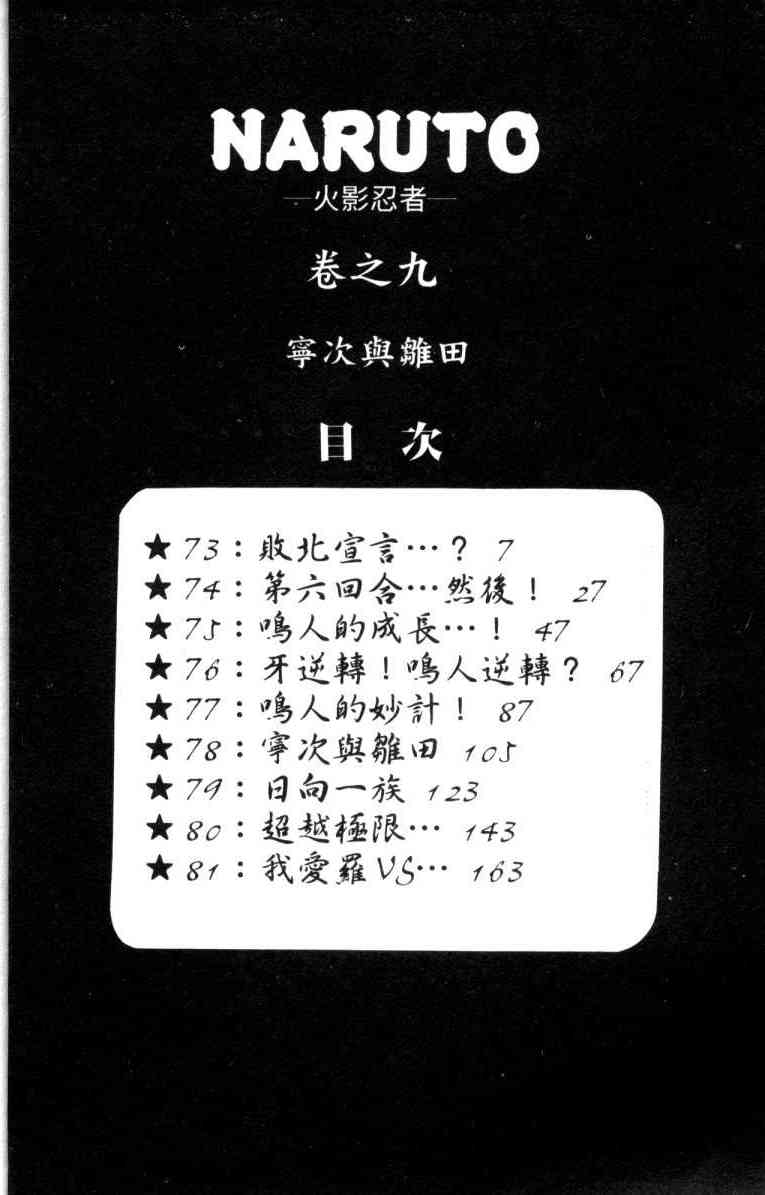 NARUTO
—火影忍者—
卷之九
寧次與雛田
目 次
★73：敗北宣言…？ 7
★74：第六回合…然後！ 27
★75：鳴人的成長…！ 47
★76：牙逆轉！鳴人逆轉？ 67
★77：鳴人的妙計！ 87
★78：寧次與雛田 105
★79：日向一族 123
★80：超越極限… 143
★81：我愛羅VS… 163